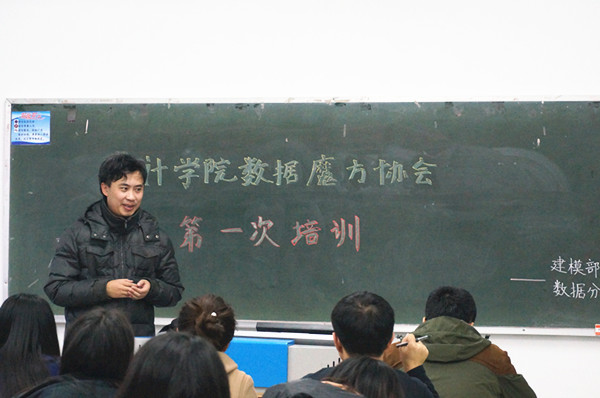 计学院数据魔方协会
第一次培训
建模部
——数据分